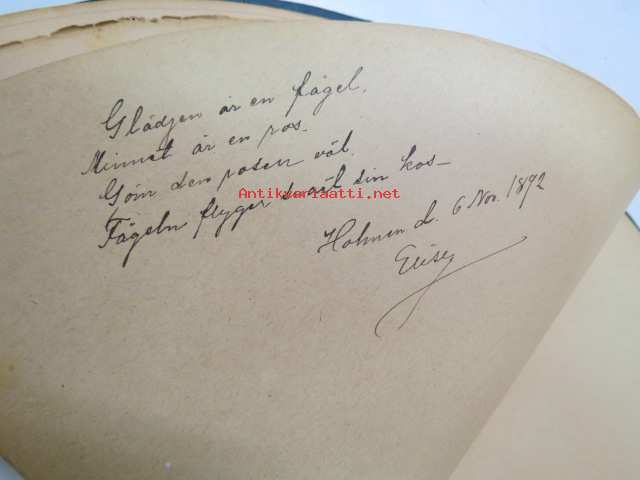 Glädjen är en fågel,
Minnet är en ros.
Göm den rosen väl.
Fågeln flyger snart sin kos –
Antikvariaatti.net
Holmen d. 6 Nov. 1892
Elise